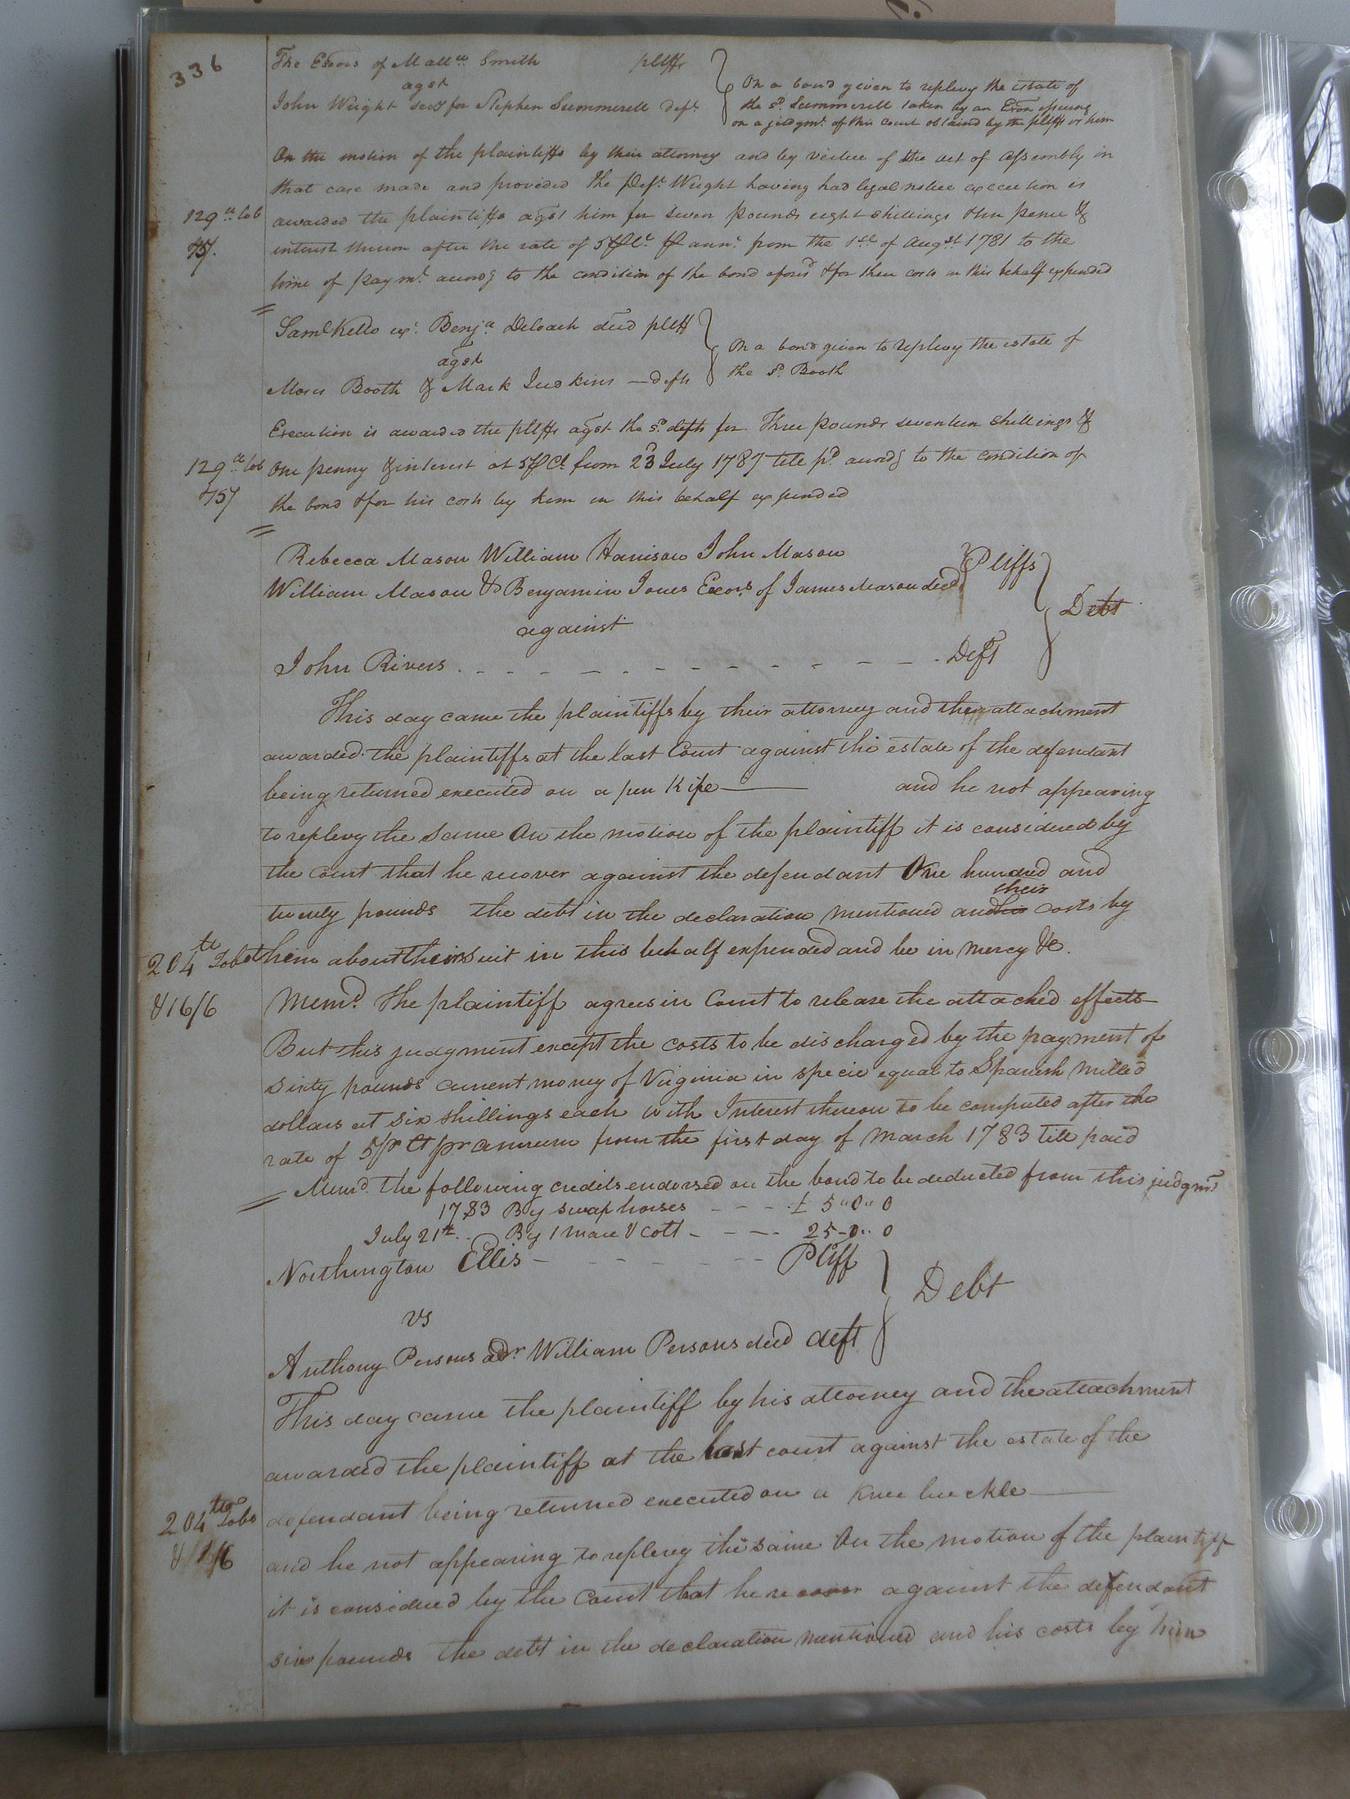 336
The Exors of Matt.w Smith pltffs
agst
John Wright sec.y for Stephen Summerell Deft.
On a bond given to replevy the estate of
the s.d Summerell taken by an Exon
on a judgm.t of this Court obtained by the pltffs vs him
On the motion of the plaintiffs by their attorney and by virtue of the act of Assembly in
that case made and provided the Def.t Wright having had legal notice execution is
129.lb tob awarded the plaintiffs ag.st him for seven pounds eight shillings three pence &
interest thereon after the rate of 5 ⅌ C.t ⅌ ann. from the 1st of Aug.st 1781 to the
time of paym.t accord.g to the condition of the bond afores.d & for their costs in this behalf expended
Sam.l Kello ex.r Benj.a Deloach decd pltff
agst
Moses Booth & Mark Judkins — defts
On a bond given to replevy the estate of
the s.d Booth
Execution is awarded the pltffs agst the s.d defts for Three pounds seventeen shillings &
129.lb tob One penny & interest at 5 ⅌ Ct. from 23 July 1787 till p.d accord.g to the condition of
the bond & for his costs by him in this behalf expended
Rebecca Mason William Harrison John Mason
William Mason & Benjamin Jones Exors. of James Mason decd Pltffs
against
Debt
John Rivers . - - - - - - - - - - - Deft
This day came the plaintiffs by their attorney and the attachment
awarded the plaintiffs at the last Court against the estate of the defendant
being returned executed on a pen Knife —— and he not appearing
to replevy the same On the motion of the plaintiff it is considered by
the Court that he recover against the defendant One hundred and
their
twenty pounds the debt in the declaration mentioned and his costs by
204 lb Tobo them about their suit in this behalf expended and be in mercy &c.
& 16/6 Mem.d The plaintiff agrees in Court to release the attached effects
But this judgment except the costs to be discharged by the payment of
Sixty pounds current money of Virginia in specie equal to Spanish Milled
dollars at six shillings each with Interest thereon to be computed after the
rate of 5 ⅌ Ct pr annum from the first day of March 1783 till paid
Mem.d the following credits endorsed on the bond to be deducted from this judgm.t
1783 By swap horses - - - £ 5 " 0 " 0
July 21st. . By 1 mare & colt - - - 25 - 0 .. 0
Northington Ellis - - - - - - Pltff
Debt
vs
Anthony Persons adr. William Persons decd deft
This day came the plaintiff by his attorney and the attachment
awarded the plaintiff at the last court against the estate of the
defendant being returned executed on a Knee buckle ——
204 lb Tobo
and he not appearing to replevy the same On the motion of the plaintiff
it is considered by the Court that he recover against the defendant
six pounds the debt in the declaration mentioned and his costs by him